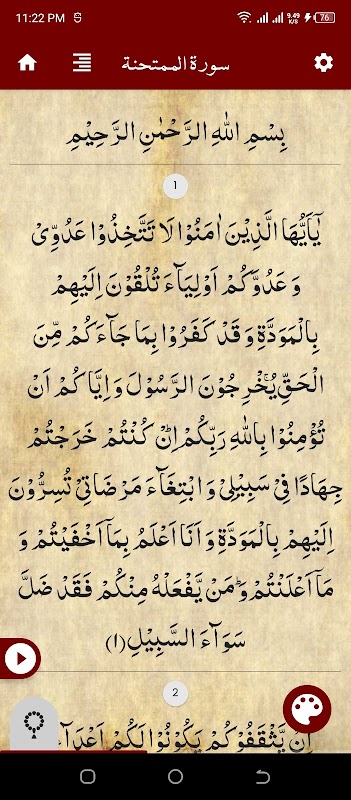 11:22 PM
9.49 K/S 76
سورة الممتحنة
بِسْمِ اللّٰهِ الرَّحْمٰنِ الرَّحِيْمِ
1
يٰٓاَيُّهَا الَّذِيْنَ اٰمَنُوْا لَا تَتَّخِذُوْا عَدُوِّيْ
وَعَدُوَّكُمْ اَوْلِيَآءَ تُلْقُوْنَ اِلَيْهِمْ
بِالْمَوَدَّةِ وَقَدْ كَفَرُوْا بِمَا جَآءَكُمْ مِّنَ
الْحَقِّ يُخْرِجُوْنَ الرَّسُوْلَ وَاِيَّاكُمْ اَنْ
تُؤْمِنُوْا بِاللّٰهِ رَبِّكُمْ اِنْ كُنْتُمْ خَرَجْتُمْ
جِهَادًا فِيْ سَبِيْلِيْ وَابْتِغَآءَ مَرْضَاتِيْ تُسِرُّوْنَ
اِلَيْهِمْ بِالْمَوَدَّةِ وَاَنَا اَعْلَمُ بِمَآ اَخْفَيْتُمْ وَ
مَآ اَعْلَنْتُمْ وَمَنْ يَّفْعَلْهُ مِنْكُمْ فَقَدْ ضَلَّ
سَوَآءَ السَّبِيْلِ(۱)
2
اِنْ يَّثْقَفُوْكُمْ يَكُوْنُوْا لَكُمْ اَعْدَآءً